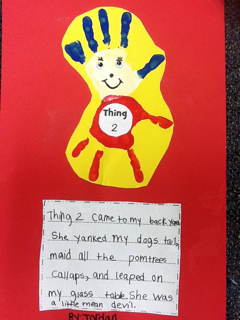 Thing
2
Thing 2 came to my back yard
She yanked my dogs tail,
maid all the pomtrees
callaps, and leaped on
my glass table. She was
a little mean devil.
By Jordan